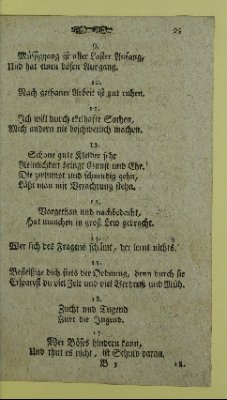 95
9.
Müßiggang ist aller Laster Anfang,
Und hat einen bösen Ausgang.
10.
Nach gethaner Arbeit ist gut ruhen.
11.
Ich will durch ekelhafte Sachen,
Mich andern nie beschwerlich machen.
12.
Schone gute Kleider sehr
Reinlichkeit bringt Gunst und Ehr.
Die zerlumpt und schmutzig gehn,
Läßt man mit Verachtung stehn.
13.
Vorgethan und nachbedacht,
Hat manchen in groß Leid gebracht.
14.
Wer sich des Fragens schämt, der lernt nichts.
Befleißige dich stets der Ordnung, denn durch sie
Ersparest du viel Zeit und viel Verdruß und Müh.
16.
Zucht und Tugend
Ziert die Jugend.
17.
Wer Böses hindern kann,
Und thut es nicht, ist Schuld daran.
B 5
18.